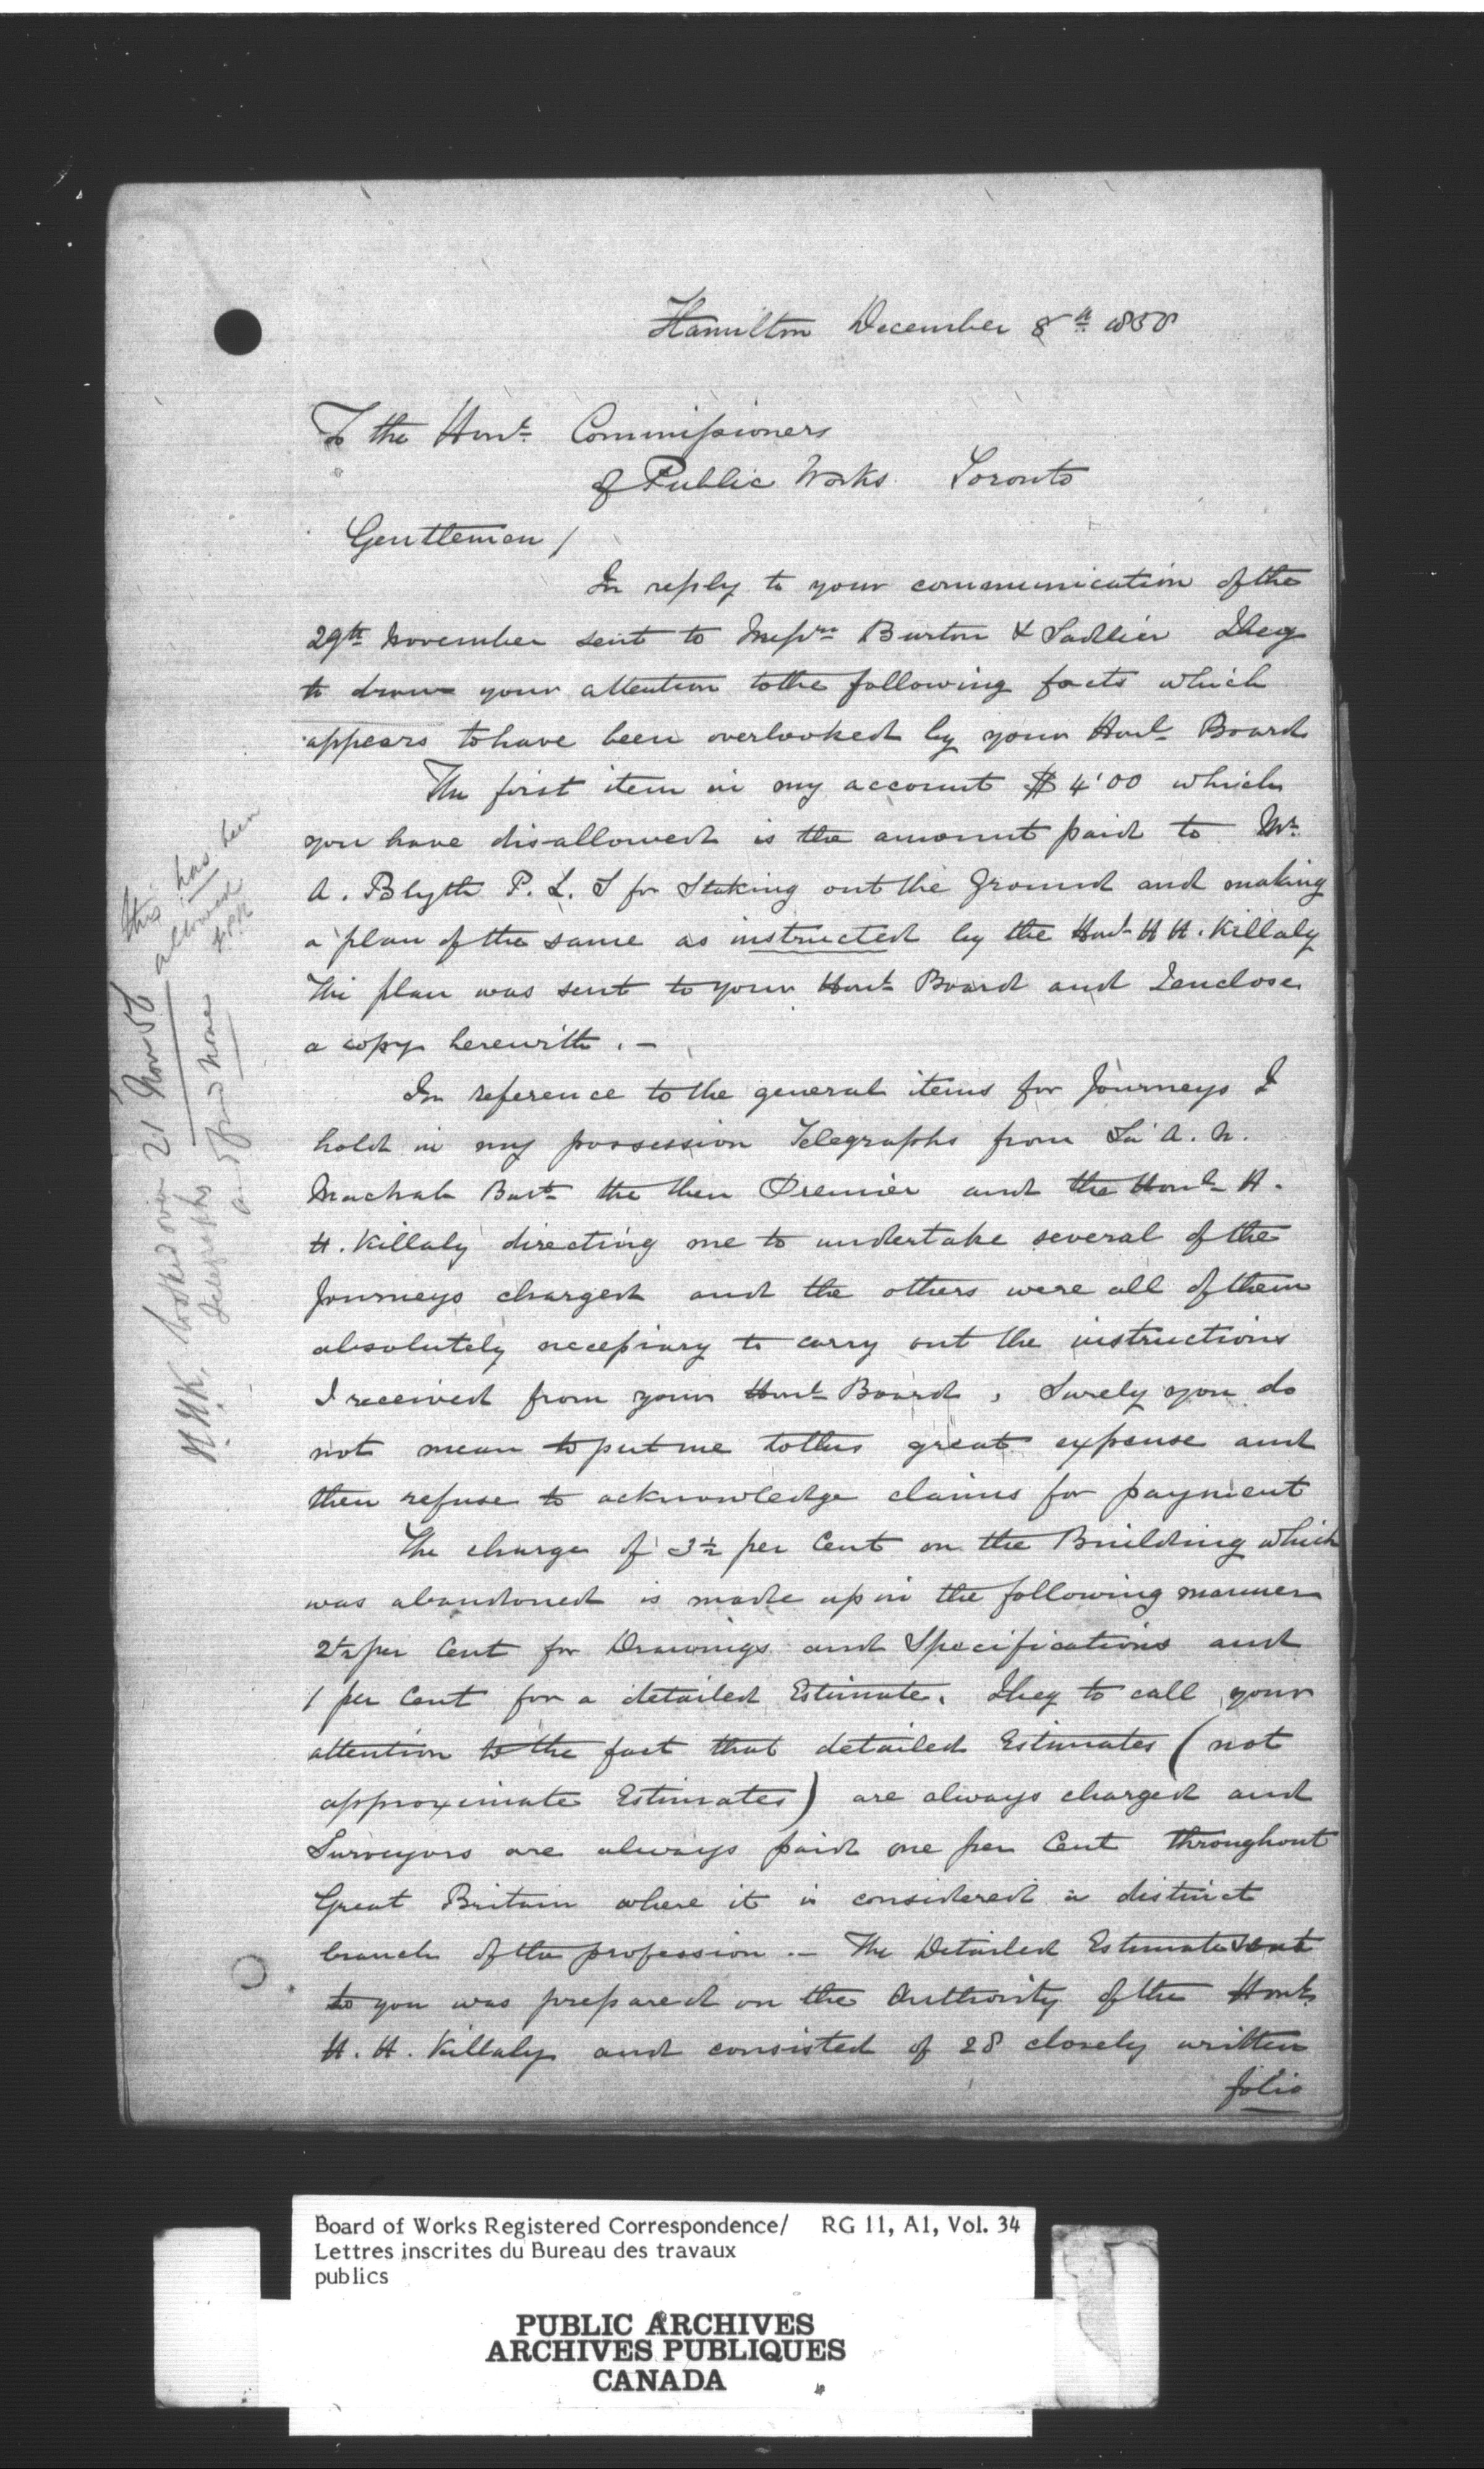 Hamilton December 8th 1858
To the Honl. Commissioners
of Public Works Toronto
Gentlemen /
In reply to your communication of the
29th November sent to Messrs Burton & Sadlier I beg
to draw your attention to the following facts which
appears to have been overlooked by your Honl Board
The first item in my account $4.00 which
you have disallowed is the amount paid to Mr.
A. Blyth P. L. S for Staking out the ground and making
a plan of the same as instructed by the Honl H H. Killaly
The plan was sent to your Honl Board and I enclose
a copy herewith. –
In reference to the general items for Journeys I
hold in my possession Telegraphs from Sir A. N.
Macnab Bart the then Premier and the Honl H.
H. Killaly directing me to undertake several of the
Journeys charged and the others were all of them
absolutely necessary to carry out the instructions
I received from your Honl Board, Surely you do
not mean to put me to this great expense and
then refuse to acknowledge claims for payment
The charge of 3½ per Cent on the Building which
was abandoned is made up in the following manner
2½ per Cent for Drawings and Specifications and
1 per Cent for a detailed Estimate. I beg to call your
attention to the fact that detailed Estimates (not
approximate Estimates) are always charged and
Surveyors are always paid one per Cent throughout
Great Britain where it is considered a distinct
branch of the profession. – The Detailed Estimate sent
to you was prepared on the Authority of the Honl
H. H. Killaly and consisted of 28 closely written
folio
this has been
allowed
H.H.K. looked over 21 Nov 58
Telegraphs and find none
Board of Works Registered Correspondence/ RG 11, A1, Vol. 34
Lettres inscrites du Bureau des travaux
publics
PUBLIC ARCHIVES
ARCHIVES PUBLIQUES
CANADA